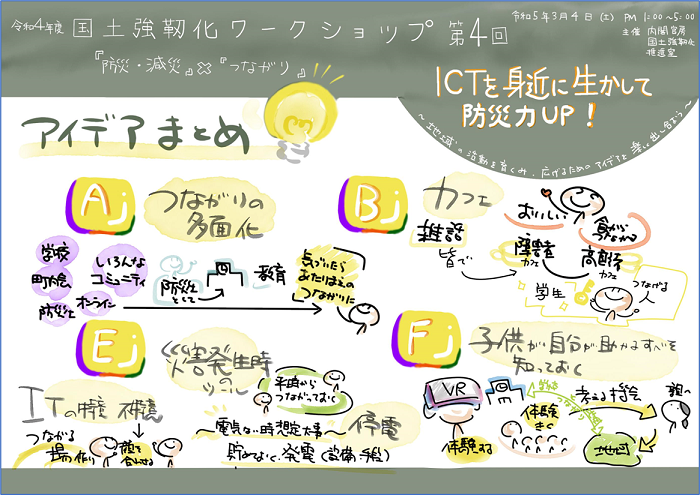 令和4年度 国土強靭化ワークショップ 第4回
令和5年3月4日(土) PM 1:00~5:00
主催 内閣官房
国土強靭化
推進室
『防災・減災』×『つながり』
ICTを身近に生かして
防災力UP!
アイデアまとめ
Aj
つながりの
多面化
学校
町内会
防災士
いろんな
コミュニティ
オンライン
防災士
として
教育
気づいたら
あたりまえの
つながりに
Bj
カフェ
雑談
皆で
おいしい
食から
つながる
障害者
カフェ
高齢者
カフェ
学生
つながる
人
Ej
災害発生時
の
ツール
平時から
つながっておく
ITの得意 不得意
つながる
場の作り
顔を
合わせる
停電
~電気ない時想定大事~
貯めなく発電(設備・手段)
Fj
子供が自分が助かるすべを
知っておく
VR
体験する
体験
きく
考える機会
親へ
地域